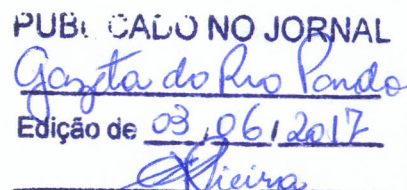 PUBLICADO NO JORNAL
Gazeta do Rio Pardo
Edição de 03 / 06 / 2017
Vieira